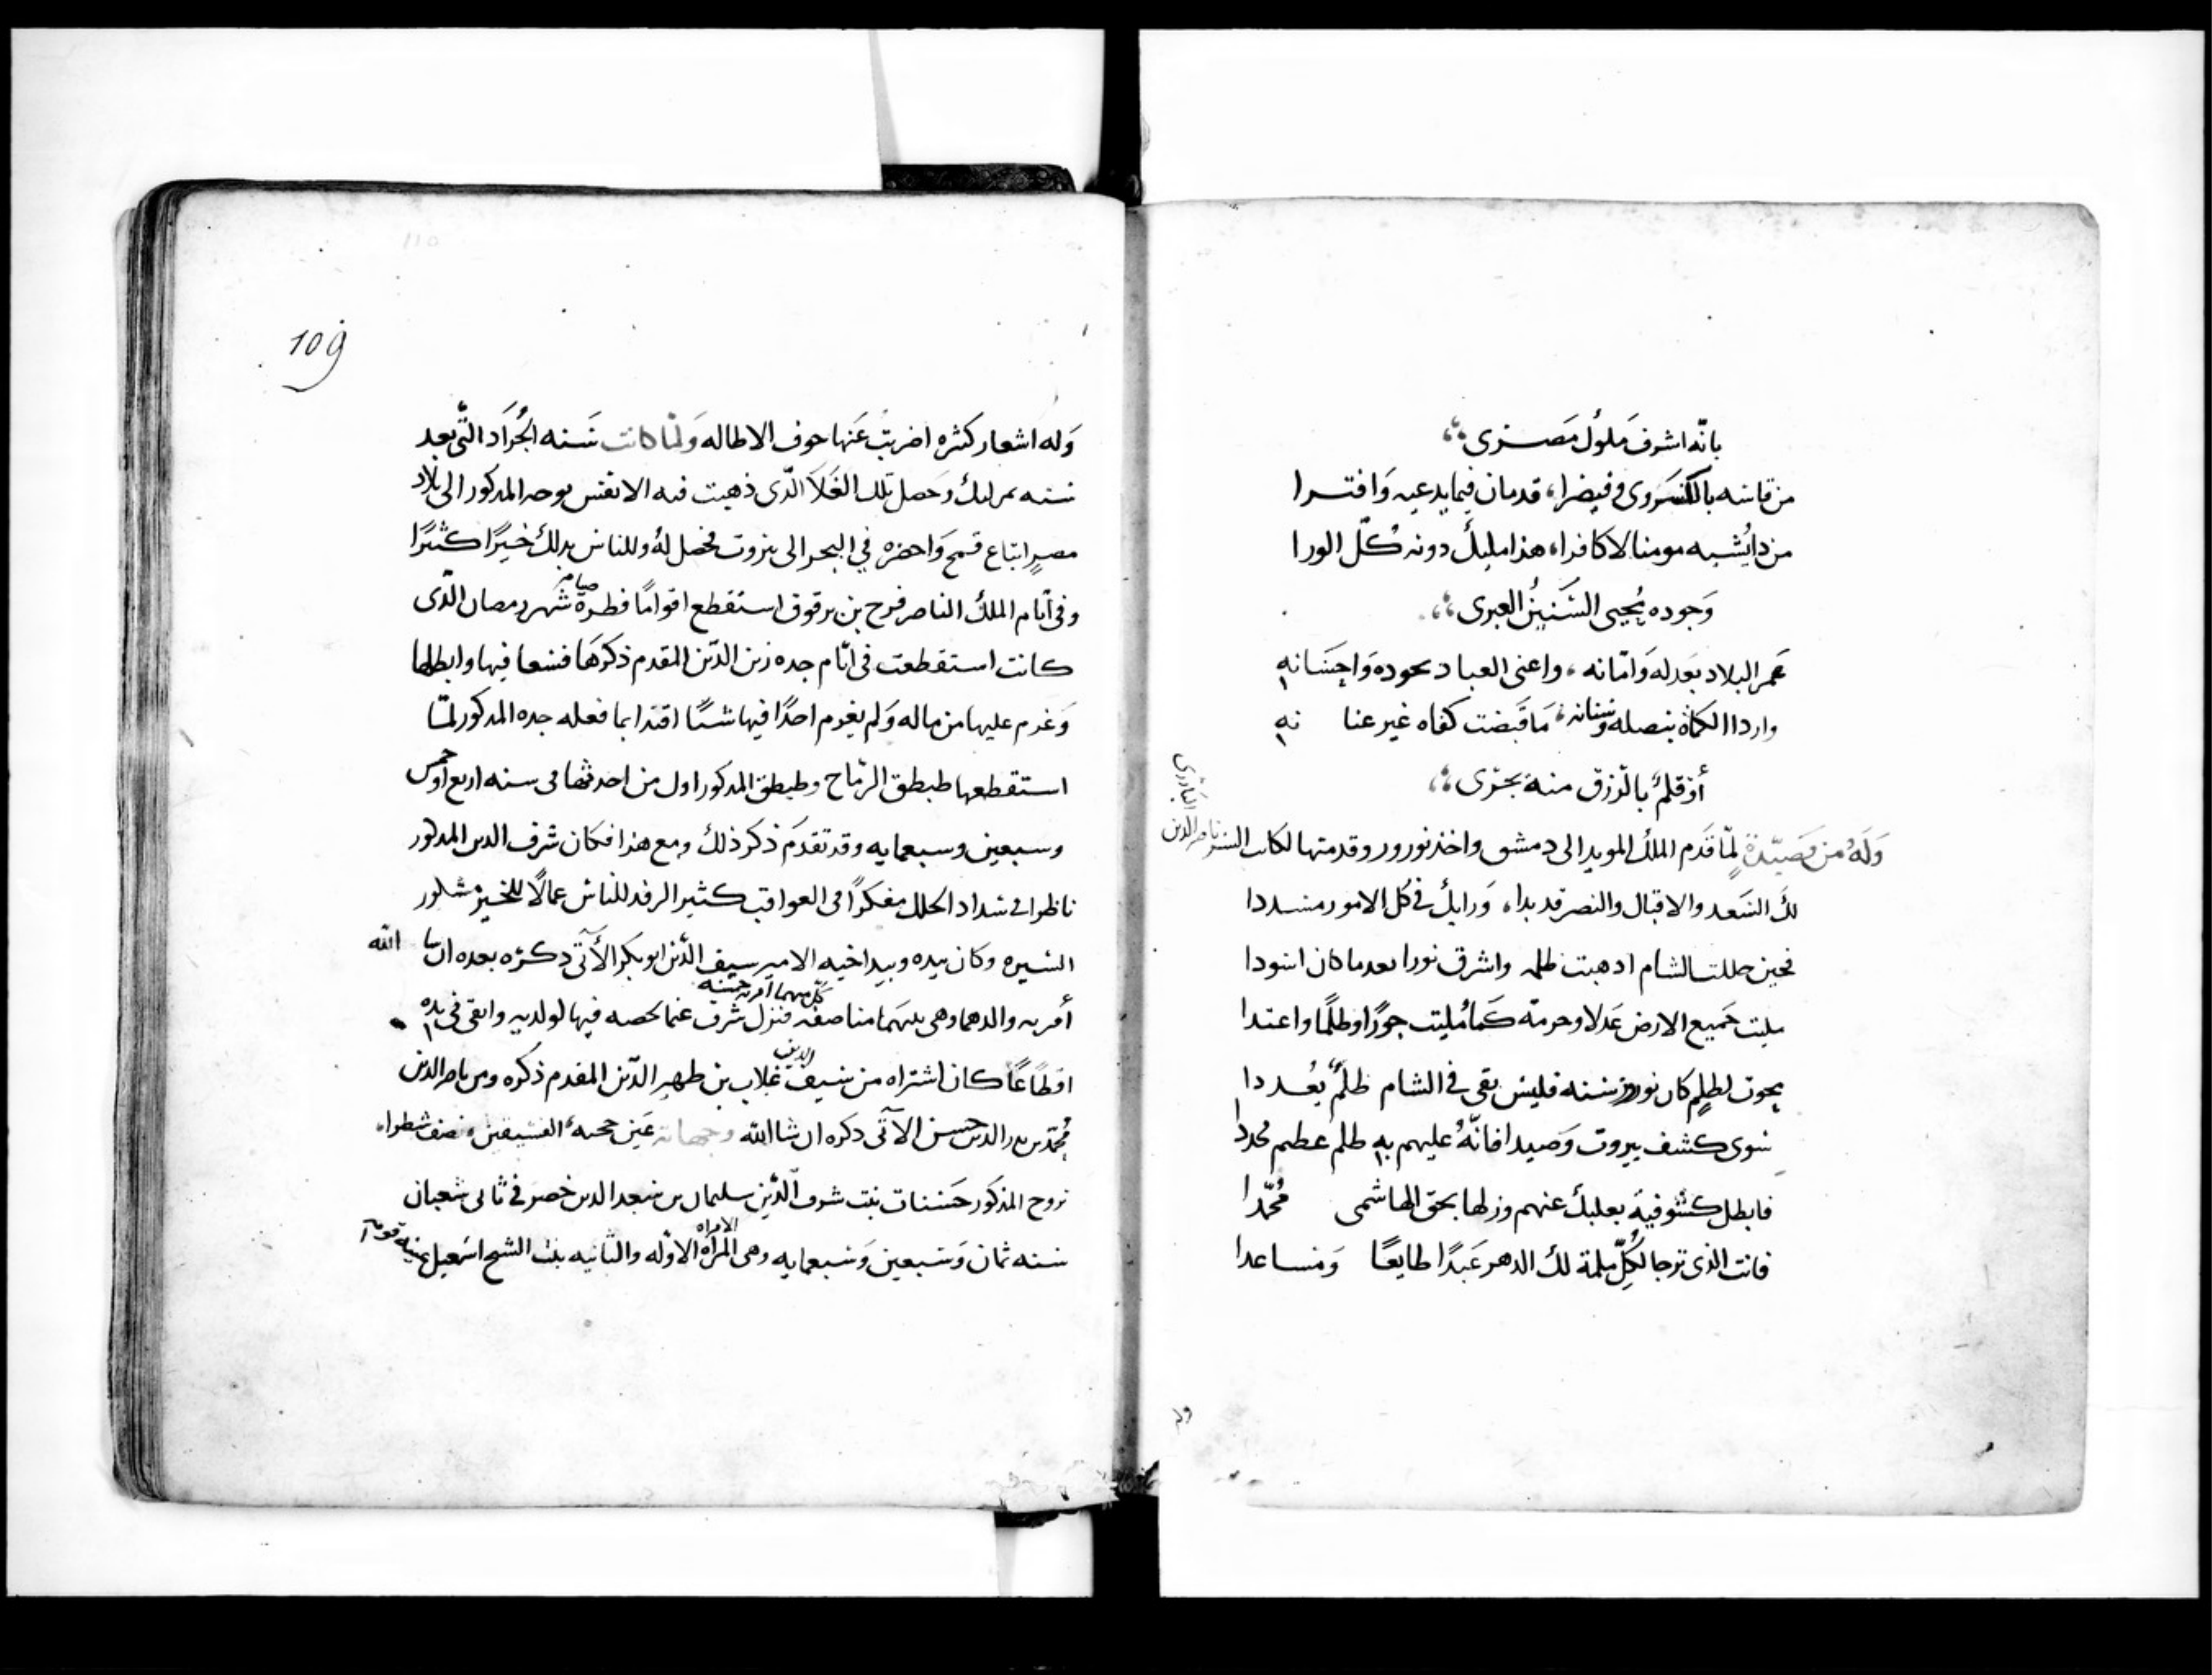 بانّه اشرف مَلوُك مَصـرى
من قاسَه بالكسَروى وفيصرا، قدمان فيما يدعيه وَافتــرا
من ذا يُشبه مومنا لا كافرا، هذا مليكٌ دونه كُلّ الورا
وَجوده يُحيى السَنينُ العبرى
عمر البلاد بعَدله وَامَانه، واغنى العباد بجوده وَاحِسَانه
واردا الكماة بنصله وسنانه، مَا قَبضت كفاه غير عنا نه
أو قلمٌ بالرّزق منهَ يجرى
وَلَهُ من قصيّدةٍ لمّا قَدم الملك المويد الى دمشق واخذ نوروز وقدمتها لكاتب السر ناصر الدين البَارزى
لكَ السَعد والاقبال والنصر قد بدا، وَرايك في كل الامور مسددا
فحين حللت الشام اذهبت ظلمه واشرق نورا بعد ما كان اسَودا
مليت جَميع الارض عَدلا وحرمة كَما مُليت جورًا وظلمًا واعتدا
محوت لظلمٍ كان نوروز سَنه فليس بقى في الشام ظلمٌ يُعددا
سَوى كشف بيروت وَصيدا فانّهُ عليهم به ظلم عظيم مجددا
فابطل كشوفية بعلبك عنهم وزلها بحق الهاشمى مُحمّدا
فانت الذى ترجا لِكُلّ ملمة لك الدهر عَبدًا طايعًا وَمسَاعدا
وله
109
110
وَله اشعار كثره اضربت عَنها خوف الاطاله وَلمّا كانت سَنه الجُرَاد التّى بعد
سَنه تمرلنك وحَصل تلك الغَلاَ الّذى ذهبت فيه الانفس توجه المذكور الى بلاد
مصرٍ ابتاع قمحٍ وَاحضره فِي البحر الى بيروت فحصل لهُ وللناس بذلك خيرًا كثيرًا
وفى ايّام الملك الناصر فرج بن برقوق استقطع اقوامًا فطرة صيام شهر رمضان الّذى
كانت استقطعت فى ايّام جده زين الدّين المقدم ذكرهَا فسَعا فيها وابطلها
وَغرم عليها من ماله وَلم يغرم احدًا فيها شيئًا اقتدا بما فعله جده المذكور لمّا
استقطعها طبطق الرمّاح وطبطق المذكور اول من احدثها فى سنه اربع او خمس
وسبعين وسبعمايه وقد تقدمَ ذكر ذلك ومع هذا فكان شرف الدين المذكور
ناظرا فى سداد الخلل مفكرًا فى العواقب كثير الرفد للناس عمالًا للخير مشكور
السَيره وكان بيده وبيد اخيه الامير سيف الدّين ابو بكر الآتى ذكره بعده ان شا الله
أمريه والدهما وهى بينهَما مناصفه كل منهما امريه خمسه فنزل شرف عما يخصه فيها لولديه وابقى فى يده
اقطاعًا كان اشتراه من سَيف الدين غلاب بن ظهير الدّين المقدم ذكره ومن ناصر الدين
مُحمّد بن بدر الدين حسن الآتى ذكره ان شا الله وجهاته عَين حجيه الفسيقين نصف شطرا
تزوج المذكور حَسَنات بنت شرف الّدين سليمان بن سَعد الدين خضر فى ثانى شعبان
سَنه ثمان وَسَبعين وَسَبعمايه وهى المرأة الاوّله والثانيه بنت الشيخ اسَمعيل